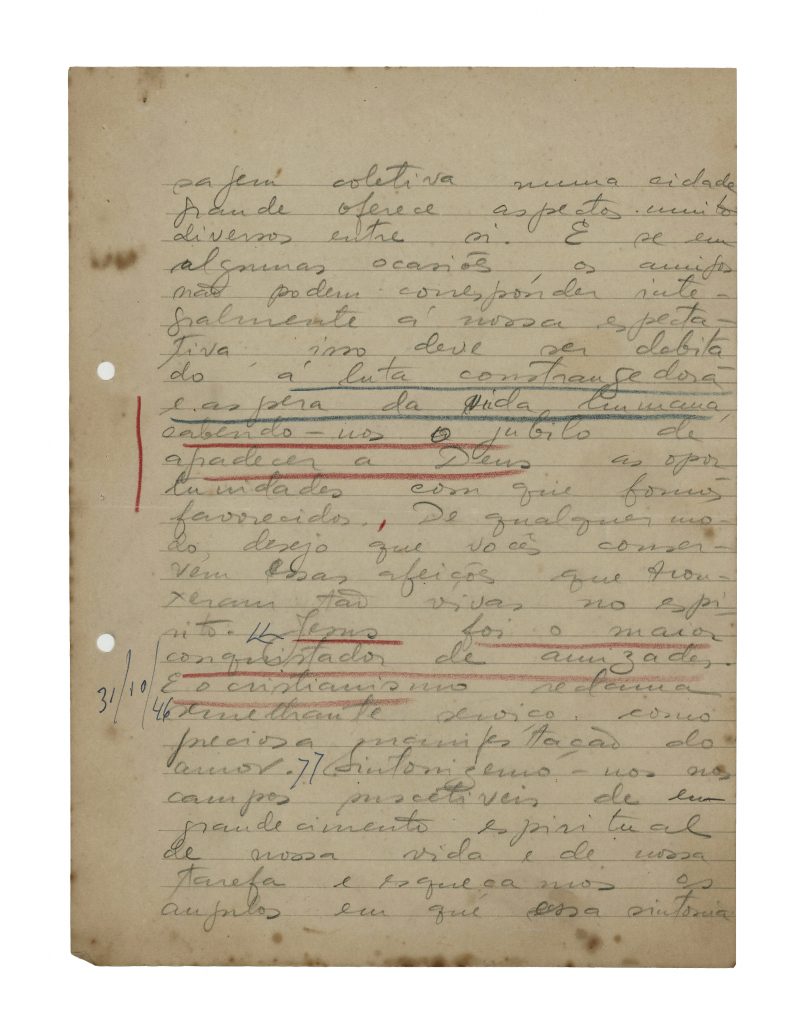 sagem coletiva numa cidade
grande oferece aspectos muito
diversos entre si. E se em
algumas ocasiões, os amigos
não podem corresponder inte-
gralmente á nossa especta-
tiva isso deve ser debita
do á luta constrangedora
e aspera da vida humana,
cabendo-nos o jubilo de
agradecer a Deus as opor
tunidades com que fomos
favorecidos. De qualquer mo-
do, desejo que vocês conser-
vem essas afeições que trou-
xeram tão vivas no espí-
rito. "Jesus foi o maior
conquistador de amizades.
E o cristianismo reclama
semelhante serviço como
preciosa manifestação do
amor." Sintonizemo-nos nos
campos suscetiveis de en
grandecimento espiritual
de nossa vida e de nossa
tarefa e esqueçamos os
angulos em que essa sintonia
31/10/46